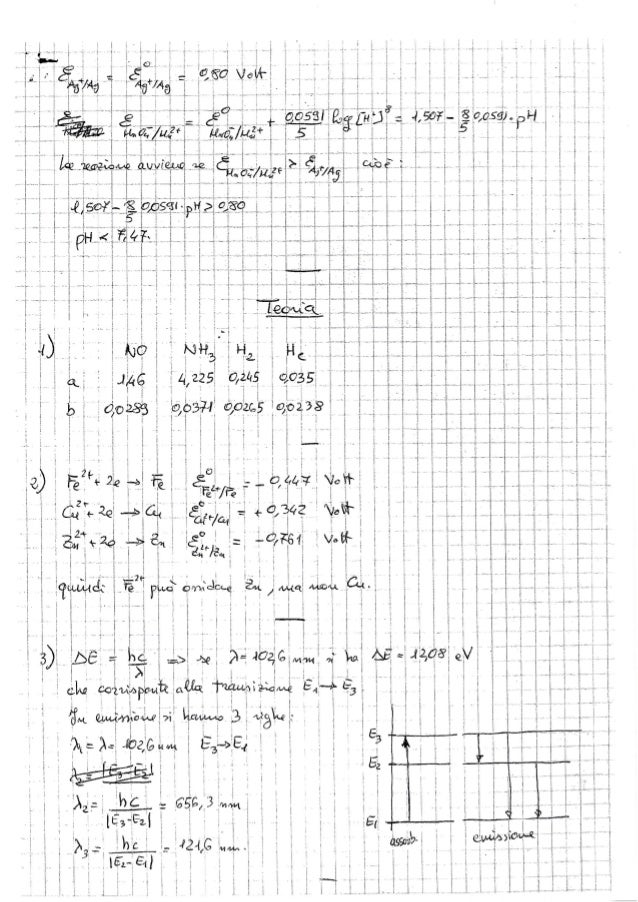 ℰ Ag⁺/Ag = ℰ⁰ Ag⁺/Ag = 0,80 Volt
ℰ MnO₄⁻/Mn²⁺ = ℰ⁰ MnO₄⁻/Mn²⁺ + 0,0591/5 log [H⁺]⁸ = 1,507 - 8/5 0,0591·pH
La reazione avviene se ℰ MnO₄⁻/Mn²⁺ > ℰ Ag⁺/Ag cioè:
1,507 - 8/5 0,0591·pH > 0,80
pH < 7,47.
Teoria
1) NO NH₃ H₂ He
a 1,46 4,225 0,245 0,035
b 0,0289 0,0371 0,0265 0,0238
2) Fe²⁺ + 2e → Fe ℰ⁰ Fe²⁺/Fe = - 0,447 Volt
Cu²⁺ + 2e → Cu ℰ⁰ Cu²⁺/Cu = + 0,342 Volt
Zn²⁺ + 2e → Zn ℰ⁰ Zn²⁺/Zn = -0,761 Volt
quindi Fe²⁺ può ossidare Zn, ma non Cu.
3) ΔE = hc/λ ⇒ se λ = 102,6 nm si ha ΔE = 12,08 eV
che corrisponte alla transizione E₁ → E₃.
In emissione si hanno 3 righe:
λ₁ = λ = 102,6 nm E₃→E₁
λ₂ = hc/|E₃-E₂| = 656,3 nm
λ₃ = hc/|E₂-E₁| = 121,6 nm.
E₃
E₂
E₁
assorb. emissione